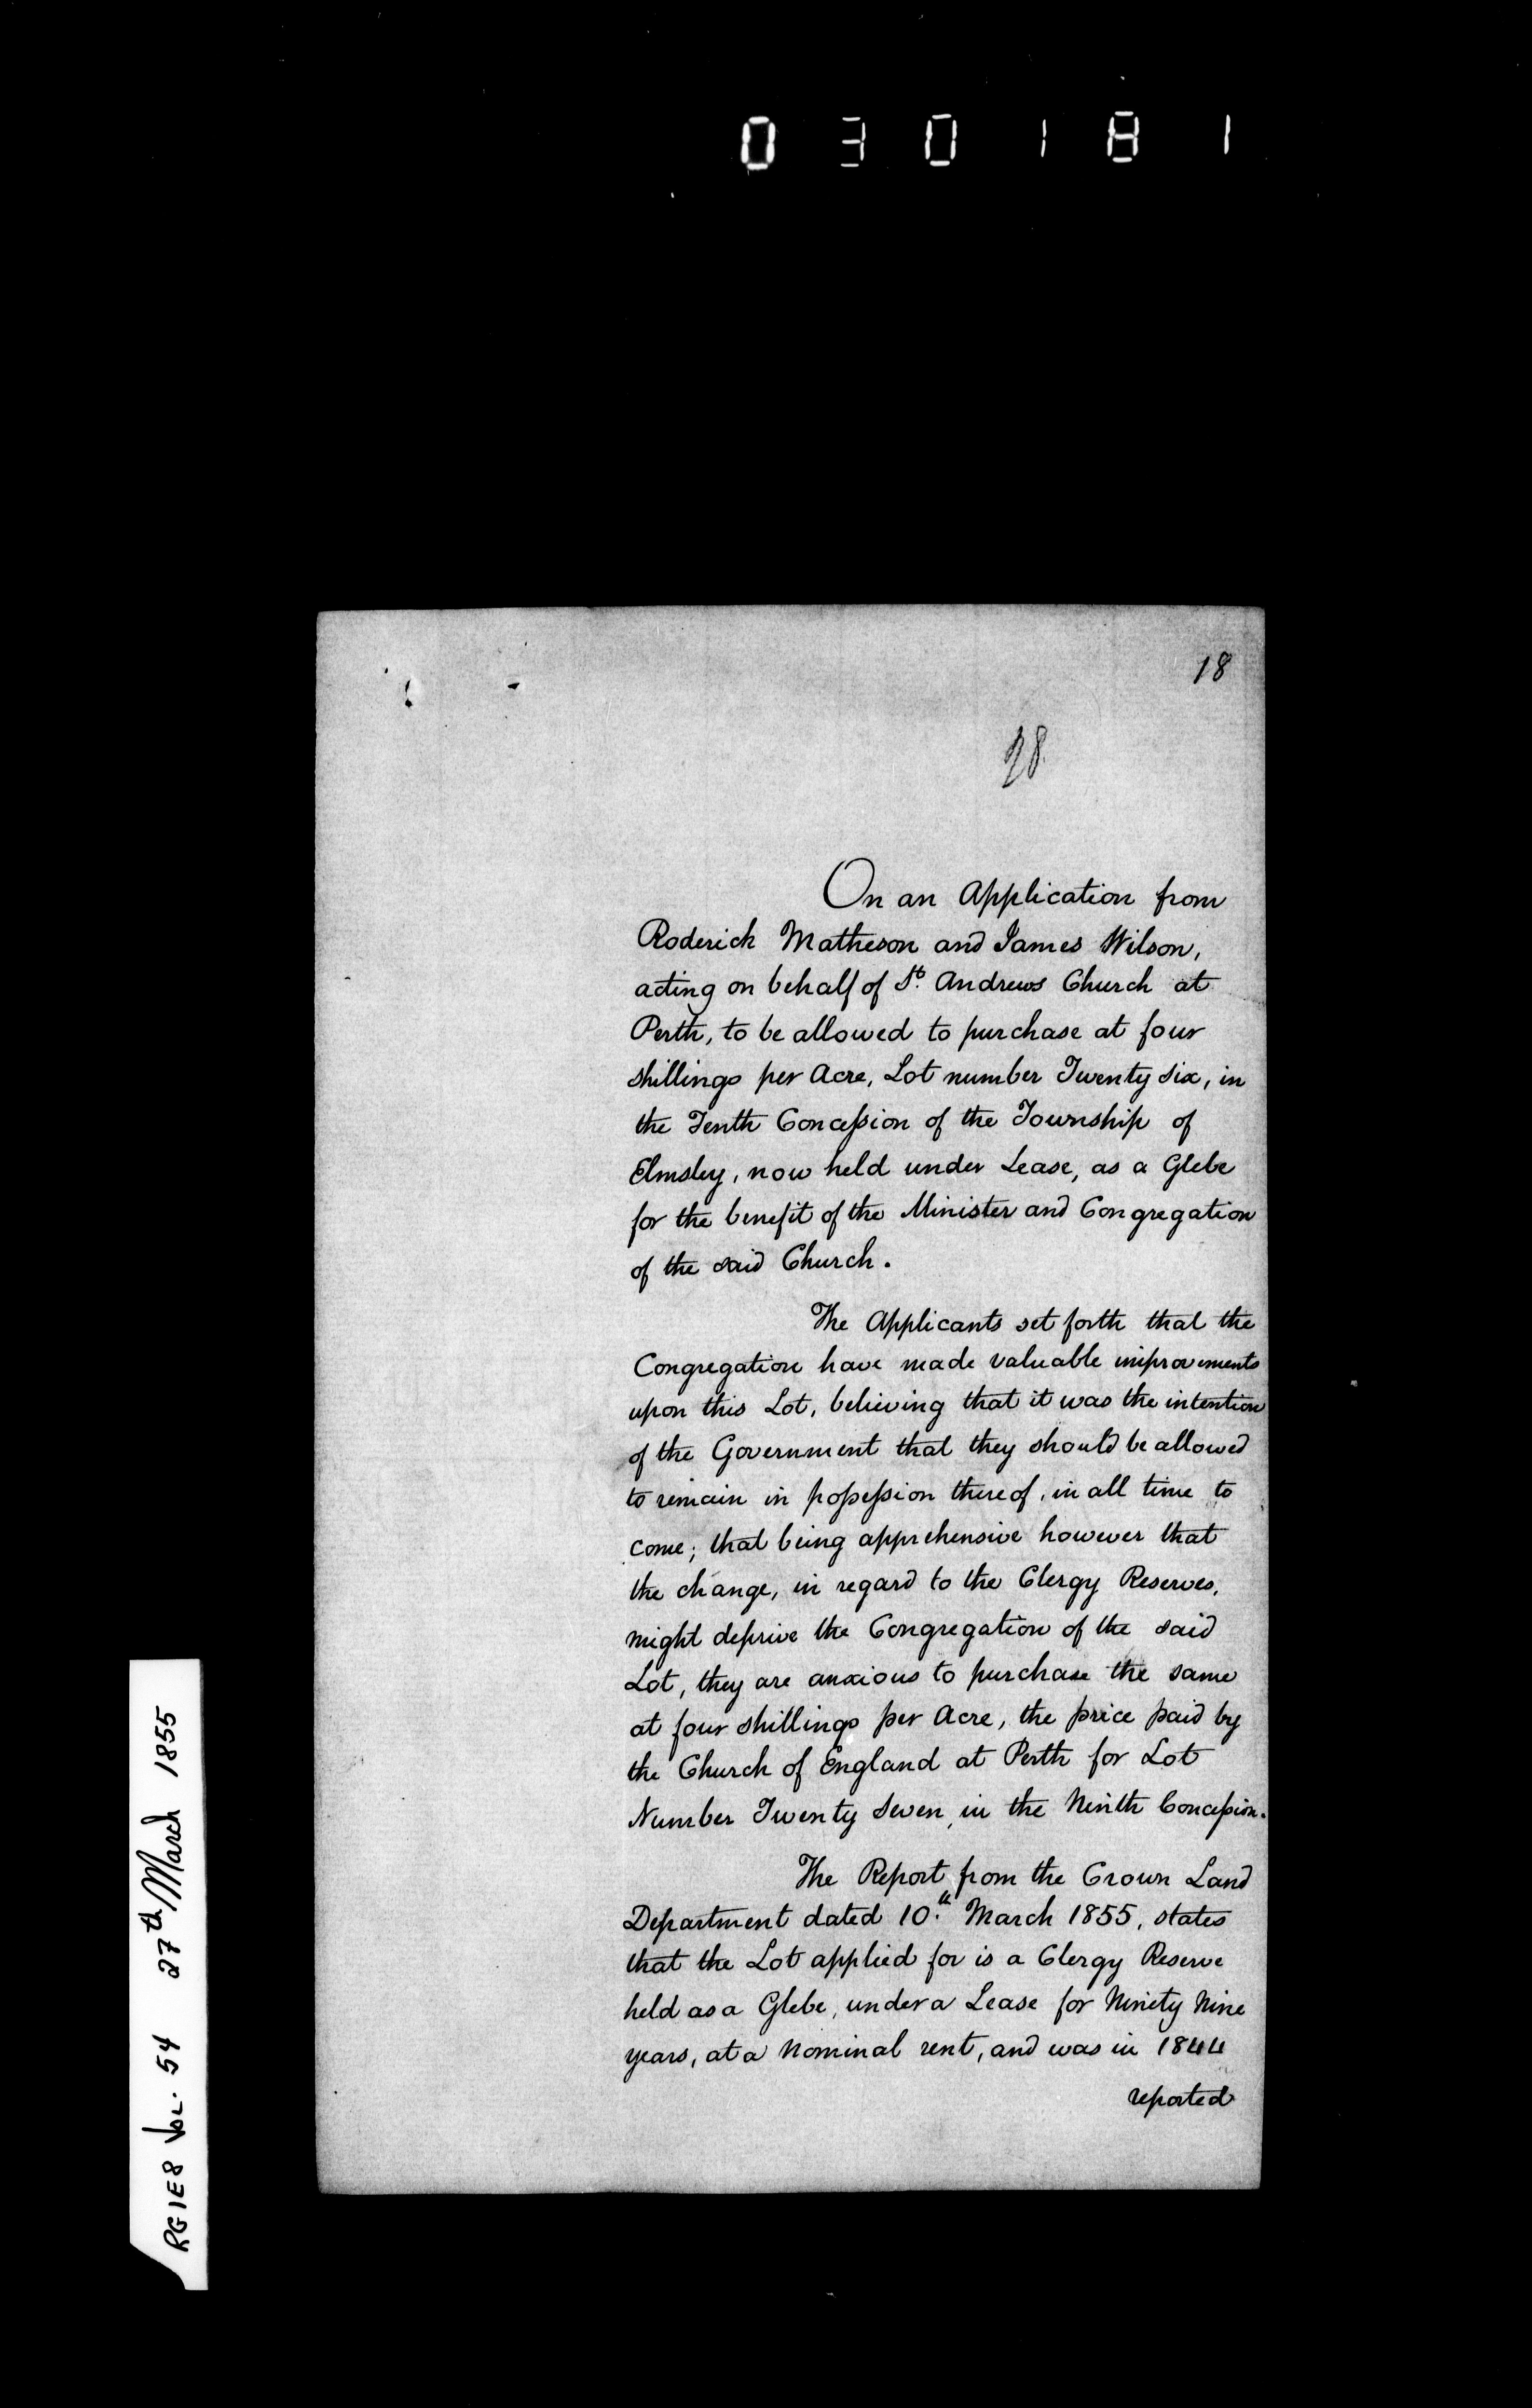 030181
18
28
On an Application from
Roderick Matheson and James Wilson,
acting on behalf of St. Andrews Church at
Perth, to be allowed to purchase at four
shillings per Acre, Lot number Twenty six, in
the Tenth Concession of the Township of
Elmsley, now held under Lease, as a Glebe
for the benefit of the Minister and Congregation
of the said Church.
The Applicants set forth that the
Congregation have made valuable improvements
upon this Lot, believing that it was the intention
of the Government that they should be allowed
to remain in possession thereof, in all time to
come; that being apprehensive however that
the change, in regard to the Clergy Reserves,
might deprive the Congregation of the said
Lot, they are anxious to purchase the same
at four shillings per Acre, the price paid by
the Church of England at Perth for Lot
Number Twenty Seven, in the Ninth Concession.
The Report from the Crown Land
Department dated 10.th March 1855, states
that the Lot applied for is a Clergy Reserve
held as a Glebe, under a Lease for Ninety Nine
years, at a Nominal rent, and was in 1844
reported
RG1E8 Vol. 54 27th March 1855